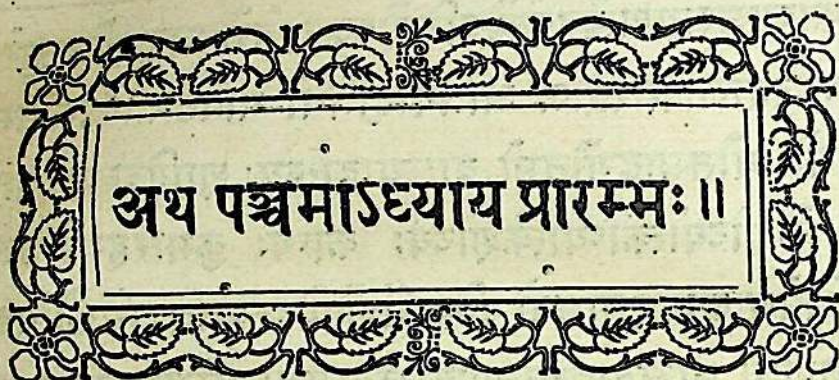 अथ पञ्चमाऽध्याय प्रारम्भः॥